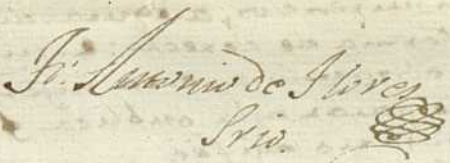 Fr. Antonio de Flores
Srio.